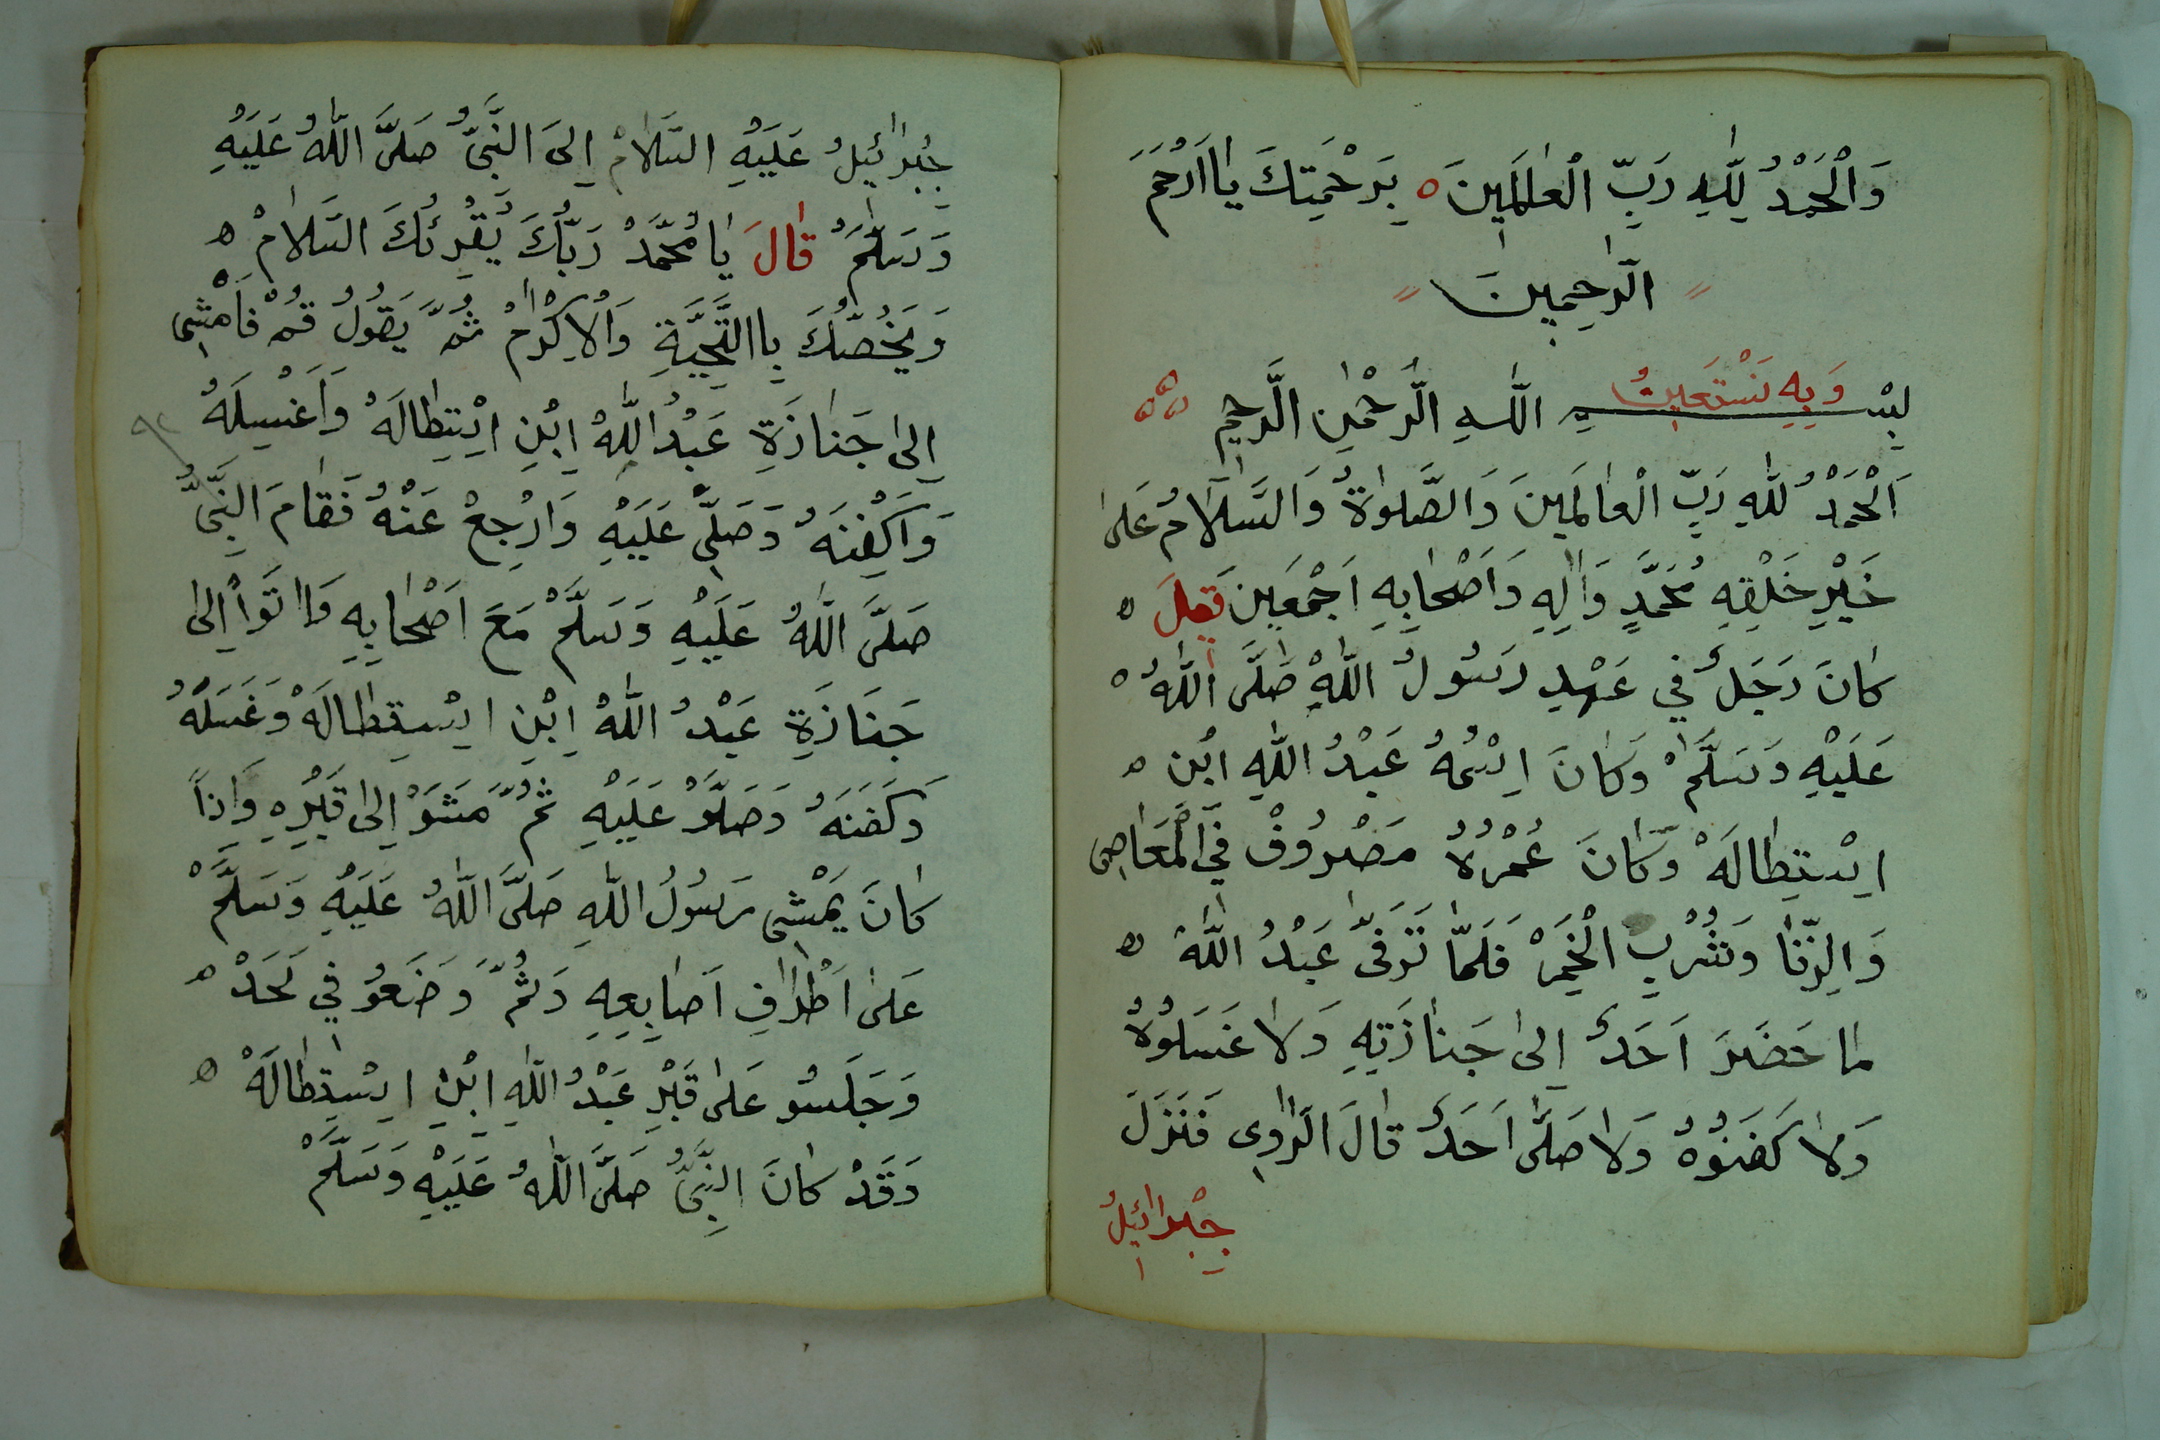 وَالْحَمْدُ لِلّٰهِ رَبِّ الْعٰلَمِينَ ه بِرَحْمَتِكَ يَا اَرْحَمَ
الرّٰحِمِينَ
وَبِهِ نَسْتَعِينُ
بِسْمِ اللّٰهِ الرَّحْمٰنِ الرَّحِيمِ
اَلْحَمْدُ لِلّٰهِ رَبِّ الْعَالَمِينَ وَالصَّلٰوةُ وَالسَّلَامُ عَلٰى
خَيْرِ خَلْقِهِ مُحَمَّدٍ وَاٰلِهِ وَاَصْحَابِهِ اَجْمَعِينَ ه
كَانَ رَجَلٌ فِي عَهْدِ رَسُولُ اللّٰهِ صَلَّى اللّٰهُ ه
عَلَيْهِ وَسَلَّمْ وَكَانَ اِسْمُهُ عَبْدُ اللّٰهِ ابْن ه
اِسْتِطَالَهْ وَكَانَ عُمْرُهُ مَصْرُوفْ فِي الْمَعَاصِى
وَالِزّنَا وَشُرْبِ الْخَمِرْ فَلَمَّا تَوَفّٰى عَبْدُ اللّٰهْ ه
مَا حَضَرَ اَحَدٌ اِلٰى جَنَازَتِهِ وَلَا غَسَلُوُهُ
وَلَا كَفَنُوُهُ وَلَا صَلَّى اَحَدٌ قَالَ الرَّاوِى فَنَزَلَ
جِبْرَائِيلُ
جِبْرَائِيلُ عَلَيْهِ السَّلَامْ اِلَى النَّبِىُّ صَلَّى اللّٰهُ عَلَيْهِ
وَسَلَّمَ قَالَ يَا مُحَمَّدْ رَبُّكَ يُقْرِئُكَ السَّلَامْ ه
وَيَخُصُّكَ بِاالتَّحِيَّةِ وَالْاِكْرَامْ ثُمَّ يَقُولُ قُمْ فَاَمْشِى
اِلٰى جَنَازَةِ عَبْدُ اللّٰهْ اِبْنِ اِسْتِطَالَهْ وَاَغْسِلَهُ
وَاَكْفِنَهُ وَصَلِّى عَلَيْهِ وَارْجِعْ عَنْهُ فَقَامَ النَّبِىُّ
صَلَّى اللّٰهُ عَلَيْهِ وَسَلَّمْ مَعَ اَصْحَابِهِ مَااتَواْ اِلٰى
جَنَازَةِ عَبْدُ اللّٰهْ اِبْنِ اِسْتِطَالَهْ وَغَسَلَهُ
وَكَفَنَهُ وَصَلَّوْ عَلَيْهِ ثُمَّ مَشَوْ اِلٰى قَبْرِهِ وَاِذَاً
كَانَ يَمْشِى رَسُولُ اللّٰهِ صَلَّى اللّٰهُ عَلَيْهِ وَسَلَّمْ
عَلٰى اَطْرَافِ اَصَابِعِهِ وَثُمَّ وَضَعُو فِي لَحَدْ ه
وَجَلَسُو عَلٰى قَبْرِ عَبْدُ اللّٰهِ اِبْنِ اِسْتِطَالَهْ ه
وَقَدْ كَانَ النَّبِىُّ صَلَّى اللّٰهُ عَلَيْهِ وَسَلَّمْ